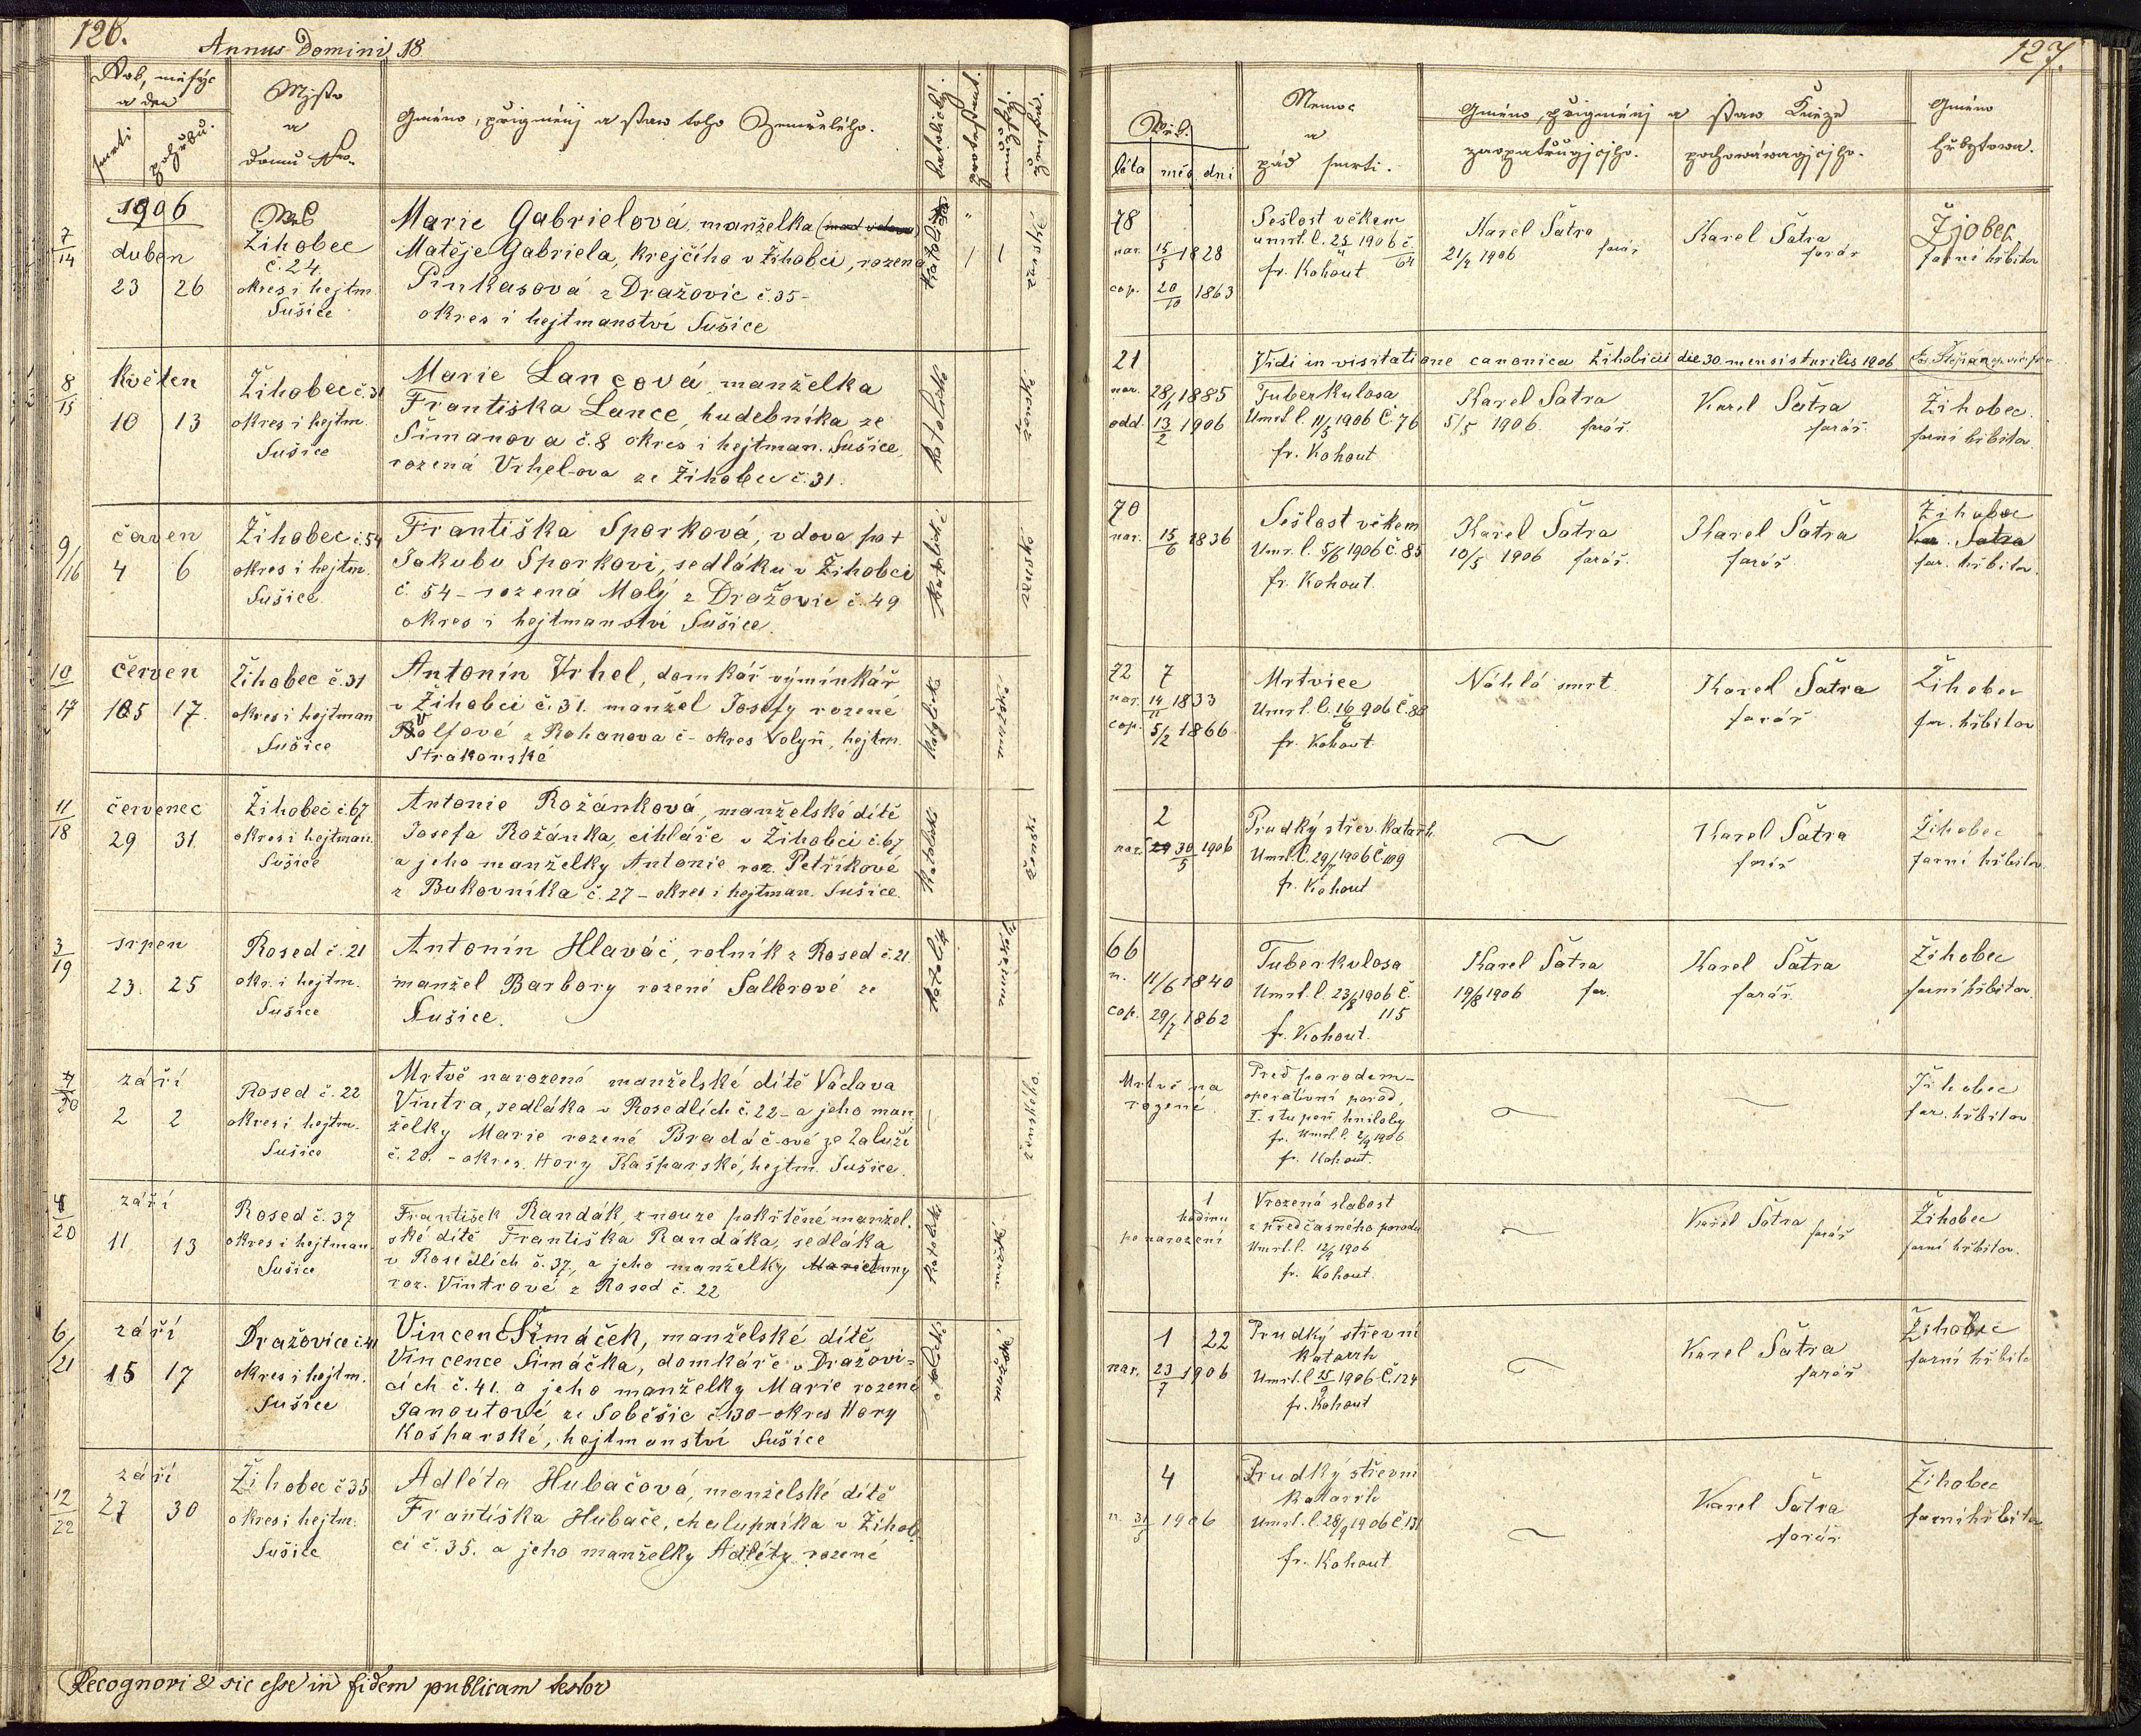 126.
Annus Domini 18
Rok, měsýc
a den
smrti
pohřbu.
Mjsto
a
domu Nro.
Gméno, přigménj a staw toho Zemřelého.
katolické.
protestant.
mužské.
ženské.
1906
duben
23 26
7/14
Ves
Žihobec
č. 24.
okres i hejtm.
Sušice
Marie Gabrielová, manželka
Matěje Gabriela, krejčího v Žihobci, rozená
Pinkasová z Dražovic č. 35 -
okres i hejtmanství Sušice
katolická
ženské
8/15
květen
10 13
Žihobec č. 31
okres i hejtm.
Sušice
Marie Lancová, manželka
Františka Lance, hudebníka ze
Šimanova č. 8 okres i hejtman. Sušice,
rozená Vrhel-ova ze Žihobce č. 31.
katolické
ženské
9/16
červen
4 6
Žihobec č. 54
okres i hejtm.
Sušice
Františka Sporková, vdova po +
Jakubu Sporkovi, sedláku v Žihobci
č. 54 - rozená Malý z Dražovic č. 49
okres i hejtmanství Sušice.
katolické
ženské
10/17
červen
15 17.
Žihobec č. 31
okres i hejtman
Sušice
Antonín Vrhel, domkář výminkář
v Žihobci č. 31. manžel Josefy rozené
Volfové z Rohanova č - okres Volyň, hejtm.
Strakonské
11/18
červenec
29 31.
Žihobec č. 67
okres i hejtman.
Sušice
Antonie Rožánková, manželské dítě
Josefa Rožánka, cihláře v Žihobci č. 67
a jeho manželky Antonie roz. Petříkové
z Bukovníka č. 27 - okres i hejtman. Sušice.
katolické
ženské
3/19
srpen
23. 25
Rosed č. 21
okr. i hejtm.
Sušice
Antonín Hlaváč, rolník z Rosed č. 21.
manžel Barbory rozené Sallerové ze
Sušice.
4/20
září
2 2
Rosed č. 22
okres i hejtm.
Sušice
Mrtvě narozené manželské dítě Václava
Vintra, sedláka v Rosedlích č. 22 - a jeho man
želky Marie rozené Bradáč-ové ze Zaluží
č. 20. - okres. Hory Kašparské, hejtm. Sušice.
4/20
září
11 13
Rosed č. 37
okres i hejtman.
Sušice
František Randák, z nouze pokřtěné manžel.
ské dítě Františka Randáka, sedláka
v Rosedlích č. 37., a jeho manželky
roz. Vintrové z Rosed č. 22
6/21
září
15 17
Dražovice č. 41
okres i hejtm.
Sušice
Vincenc Šimáček, manželské dítě
Vincence Šimáčka, domkáře v Dražovi=
cích č. 41. a jeho manželky Marie rozené
Janoutové ze Soběšic č. 130 - okres Hory
Kašparské, hejtmanství Sušice
12/22
září
27 30
Žihobec č 35
okres i hejtm.
Sušice
Adléta Hubačová, manželské dítě
Františka Hubače, chalupníka v Žihob
ci č. 35. a jeho manželky Adléty rozené
Recognovi & sic esse in fidem publicam testor
127.
Wěk.
léta měs dni
Nemoc
a
pád smrti.
Gméno, přigménj a staw Kněze
zaopatřugjcjho.
pochowáwagjcjho.
Gméno
hřbytowa.
78
nar. 15/5 1828
cop. 20/10 1863
Sešlost věkem
umrt. l. 25/4 1906 č.
64
fr. Kohout
Karel Šatra
21/4 1906 farář
Karel Šatra
farář
Žjobec
farní hřbitov
Vidi in visitatione canonica Žihobicii die 30. mensis Aprilis 1906
21
nar. 28/1 1885
odd. 13/2 1906
Tuberkulosa
Umrt. l. 11/5 1906 Č. 76
fr. Kohout
Karel Šatra
5/5 1906. farář.
Karel Šatra
farář.
Žihobec.
farní hřbitov
70
nar. 15/6 1836
Sešlost věkem
Umr. l. 5/6 1906 č. 85
fr. Kohout.
Karel Šatra
10/5 1906 farář.
Karel Šatra
farář
Žihobec
far. hřbitov.
72 7
nar. 14/11 1833
cop. 5/2 1866
Mrtvice
Umrt. l. 16/6 906 č. 88
fr. Kohout.
Náhlá smrt.
Karel Šatra
farář
Žihobec
far. hřbitov
2
nar. 30/5 1906
Prudký střev. katarrh.
Umrt. l. 29/7 1906 č 109
fr. Kohout
Karel Šatra
farář
Žihobec
farní hřbitov
66
n. 11/6 1840
cop. 29/7 1862
Tuberkulosa
Umrt. l. 23/8 1906 č.
115
fr. Kohout.
Karel Šatra
19/8 1906 far.
Karel Šatra
farář.
Žihobec
farní hřbitov.
Mrtvě na
rozené.
Před porodem -
operativní porod,
I. stupeň hniloby
fr. Umrt. l. 2/9 1906
fr. Kohout.
Žihobec
far. hřbitov
1
hodinu
po narození
Vrozená slabost
z předčasného porodu
Umrt. l. 12/9 1906
fr. Kohout.
Karel Šatra
farář
Žihobec
farní hřbitov.
1 22
nar. 23/7 1906
Prudký střevní
katarrh
Umrt. l 15/9 1906 č. 124
fr. Kohout
Karel Šatra
farář
Žihobec
farní hřbito
4
n. 31/5 1906
Prudký střevní
katarrh
Umrt. l. 28/9 1906 č 131
fr. Kohout
Karel Šatra
farář
Žihobec
farní hřbitov